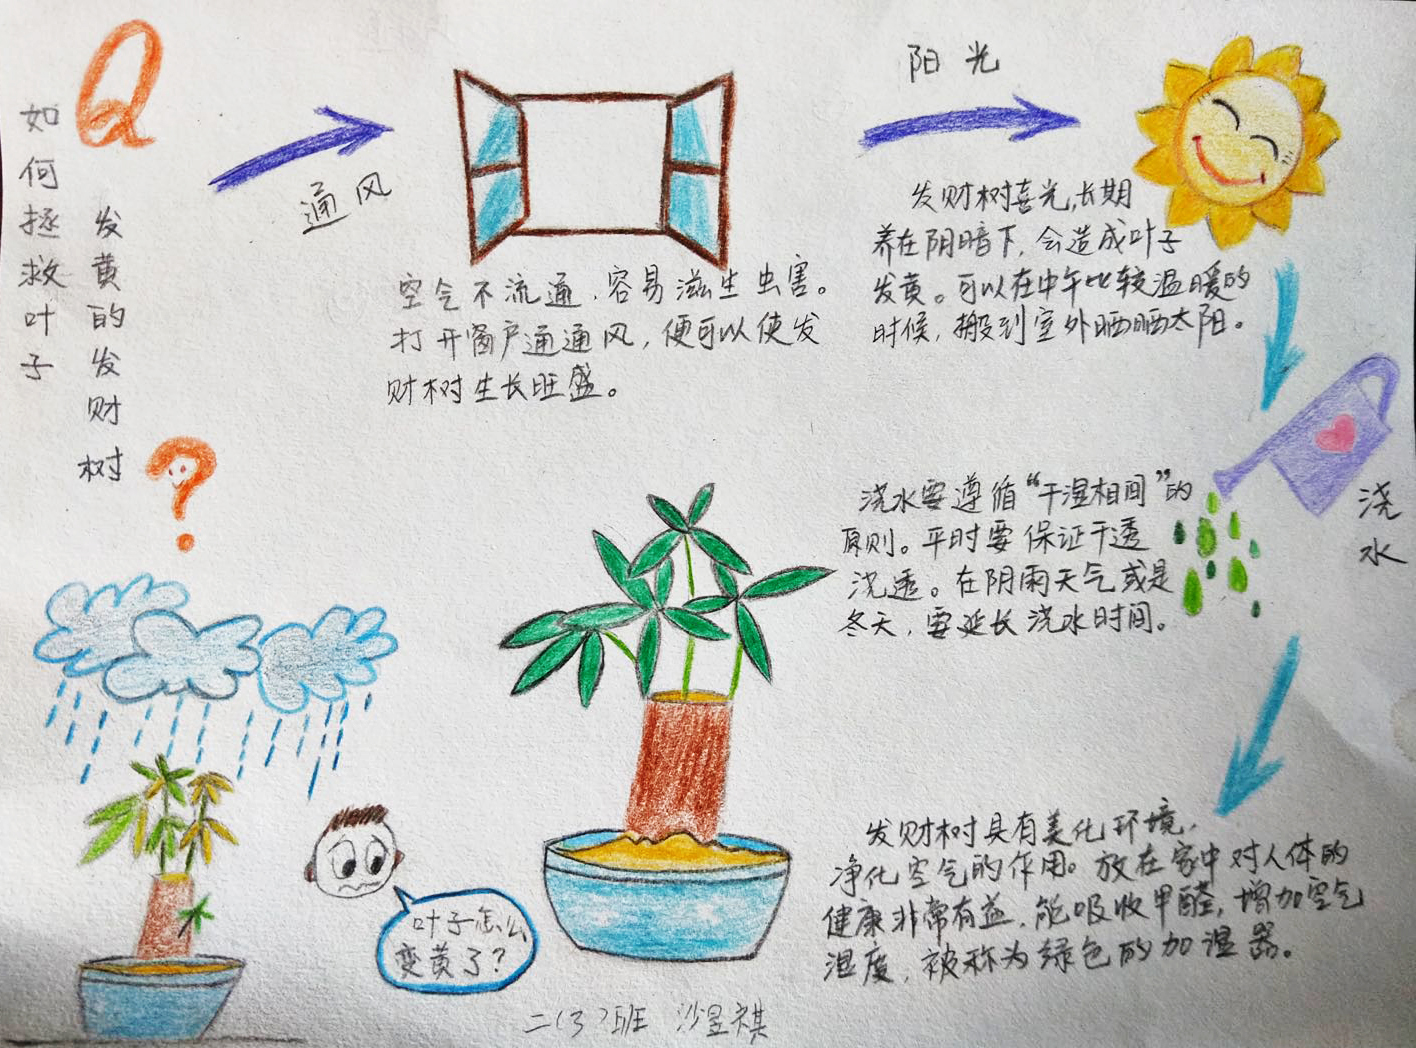 Q
如何拯救叶子
发黄的发财树
?
通风
空气不流通,容易滋生虫害。
打开窗户通通风,便可以使发
财树生长旺盛。
阳光
发财树喜光,长期
养在阴暗下,会造成叶子
发黄。可以在中午比较温暖的
时候,搬到室外晒晒太阳。
浇水
浇水要遵循“干湿相间”的
原则。平时要保证干透
浇透。在阴雨天气或是
冬天,要延长浇水时间。
发财树具有美化环境,
净化空气的作用。放在家中对人体的
健康非常有益,能吸收甲醛,增加空气
湿度,被称为绿色的加湿器。
叶子怎么
变黄了?
二(3)班 沙昱祺